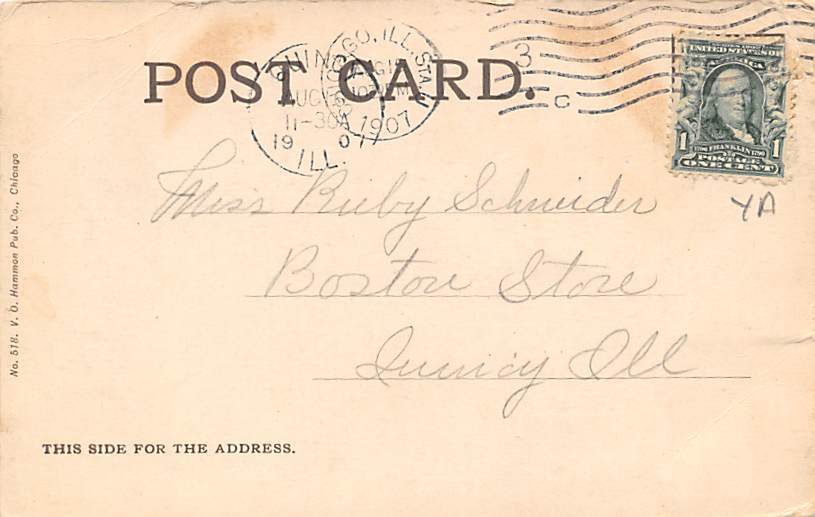 POST CARD.
CHICAGO, ILL. STA.
AUG
1907
QUINCY
AUG
11-30A
1907
ILL.
3
C
UNITED STATES OF
AMERICA
1 FRANKLIN 1
POSTAGE
ONE CENT
YA
Miss Ruby Schneider
Boston Store
Quincy Ill
No. 518. V. O. Hammon Pub. Co., Chicago
THIS SIDE FOR THE ADDRESS.